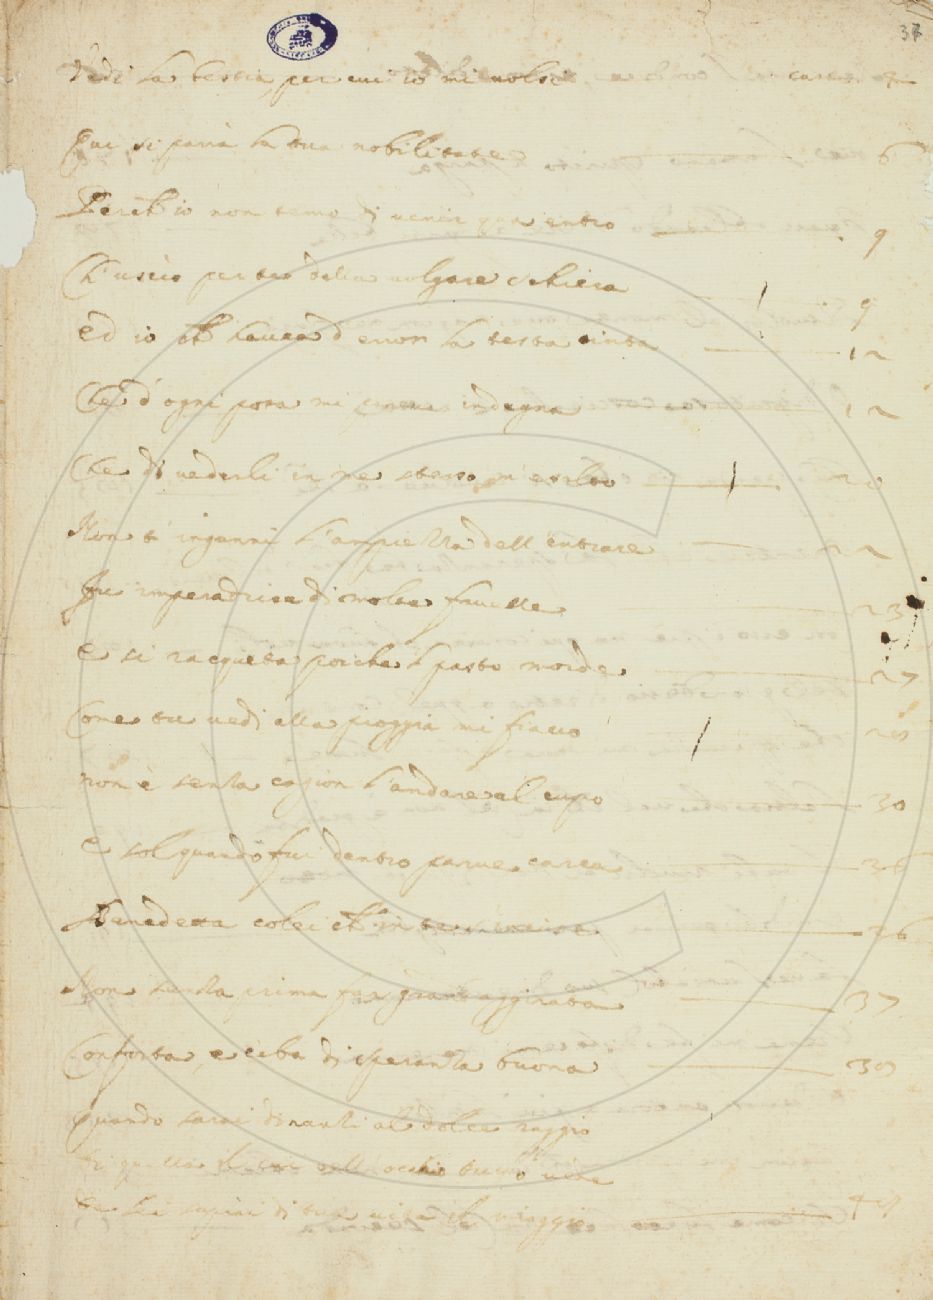 37
Vedi la bestia, per cui io mi volsi carte 4
Qui si parrà la tua nobilitate 6
Perch'io non temo di venir qua entro 9
Ch'uscìo per te della volgare schiera 9
Ed io ch'havea d'error la testa cinta 12
Che d'ogni posa mi indegna 12
Che di vederli in me stesso m'esalto 20
Non t'inganni l'ampiezza dell'entrare 22
Fu imperadrice di molte favelle 23
E si racqueta poiche 'l pasto morde 27
Come tu vedi alla pioggia mi fiacco 28
non è senza cagion l'andare al cupo 30
E sol quando fui dentro parve carca 36
Benedetta colei ch'in te s'incinse 36
Non senza prima far grande aggirata 37
Conforta, e ciba di speranza buona 39
Quando sarai dinanzi al dolce raggio
Di quella il cui bell'occhio tutto vede
Da lei saprai di tua vita il viaggio